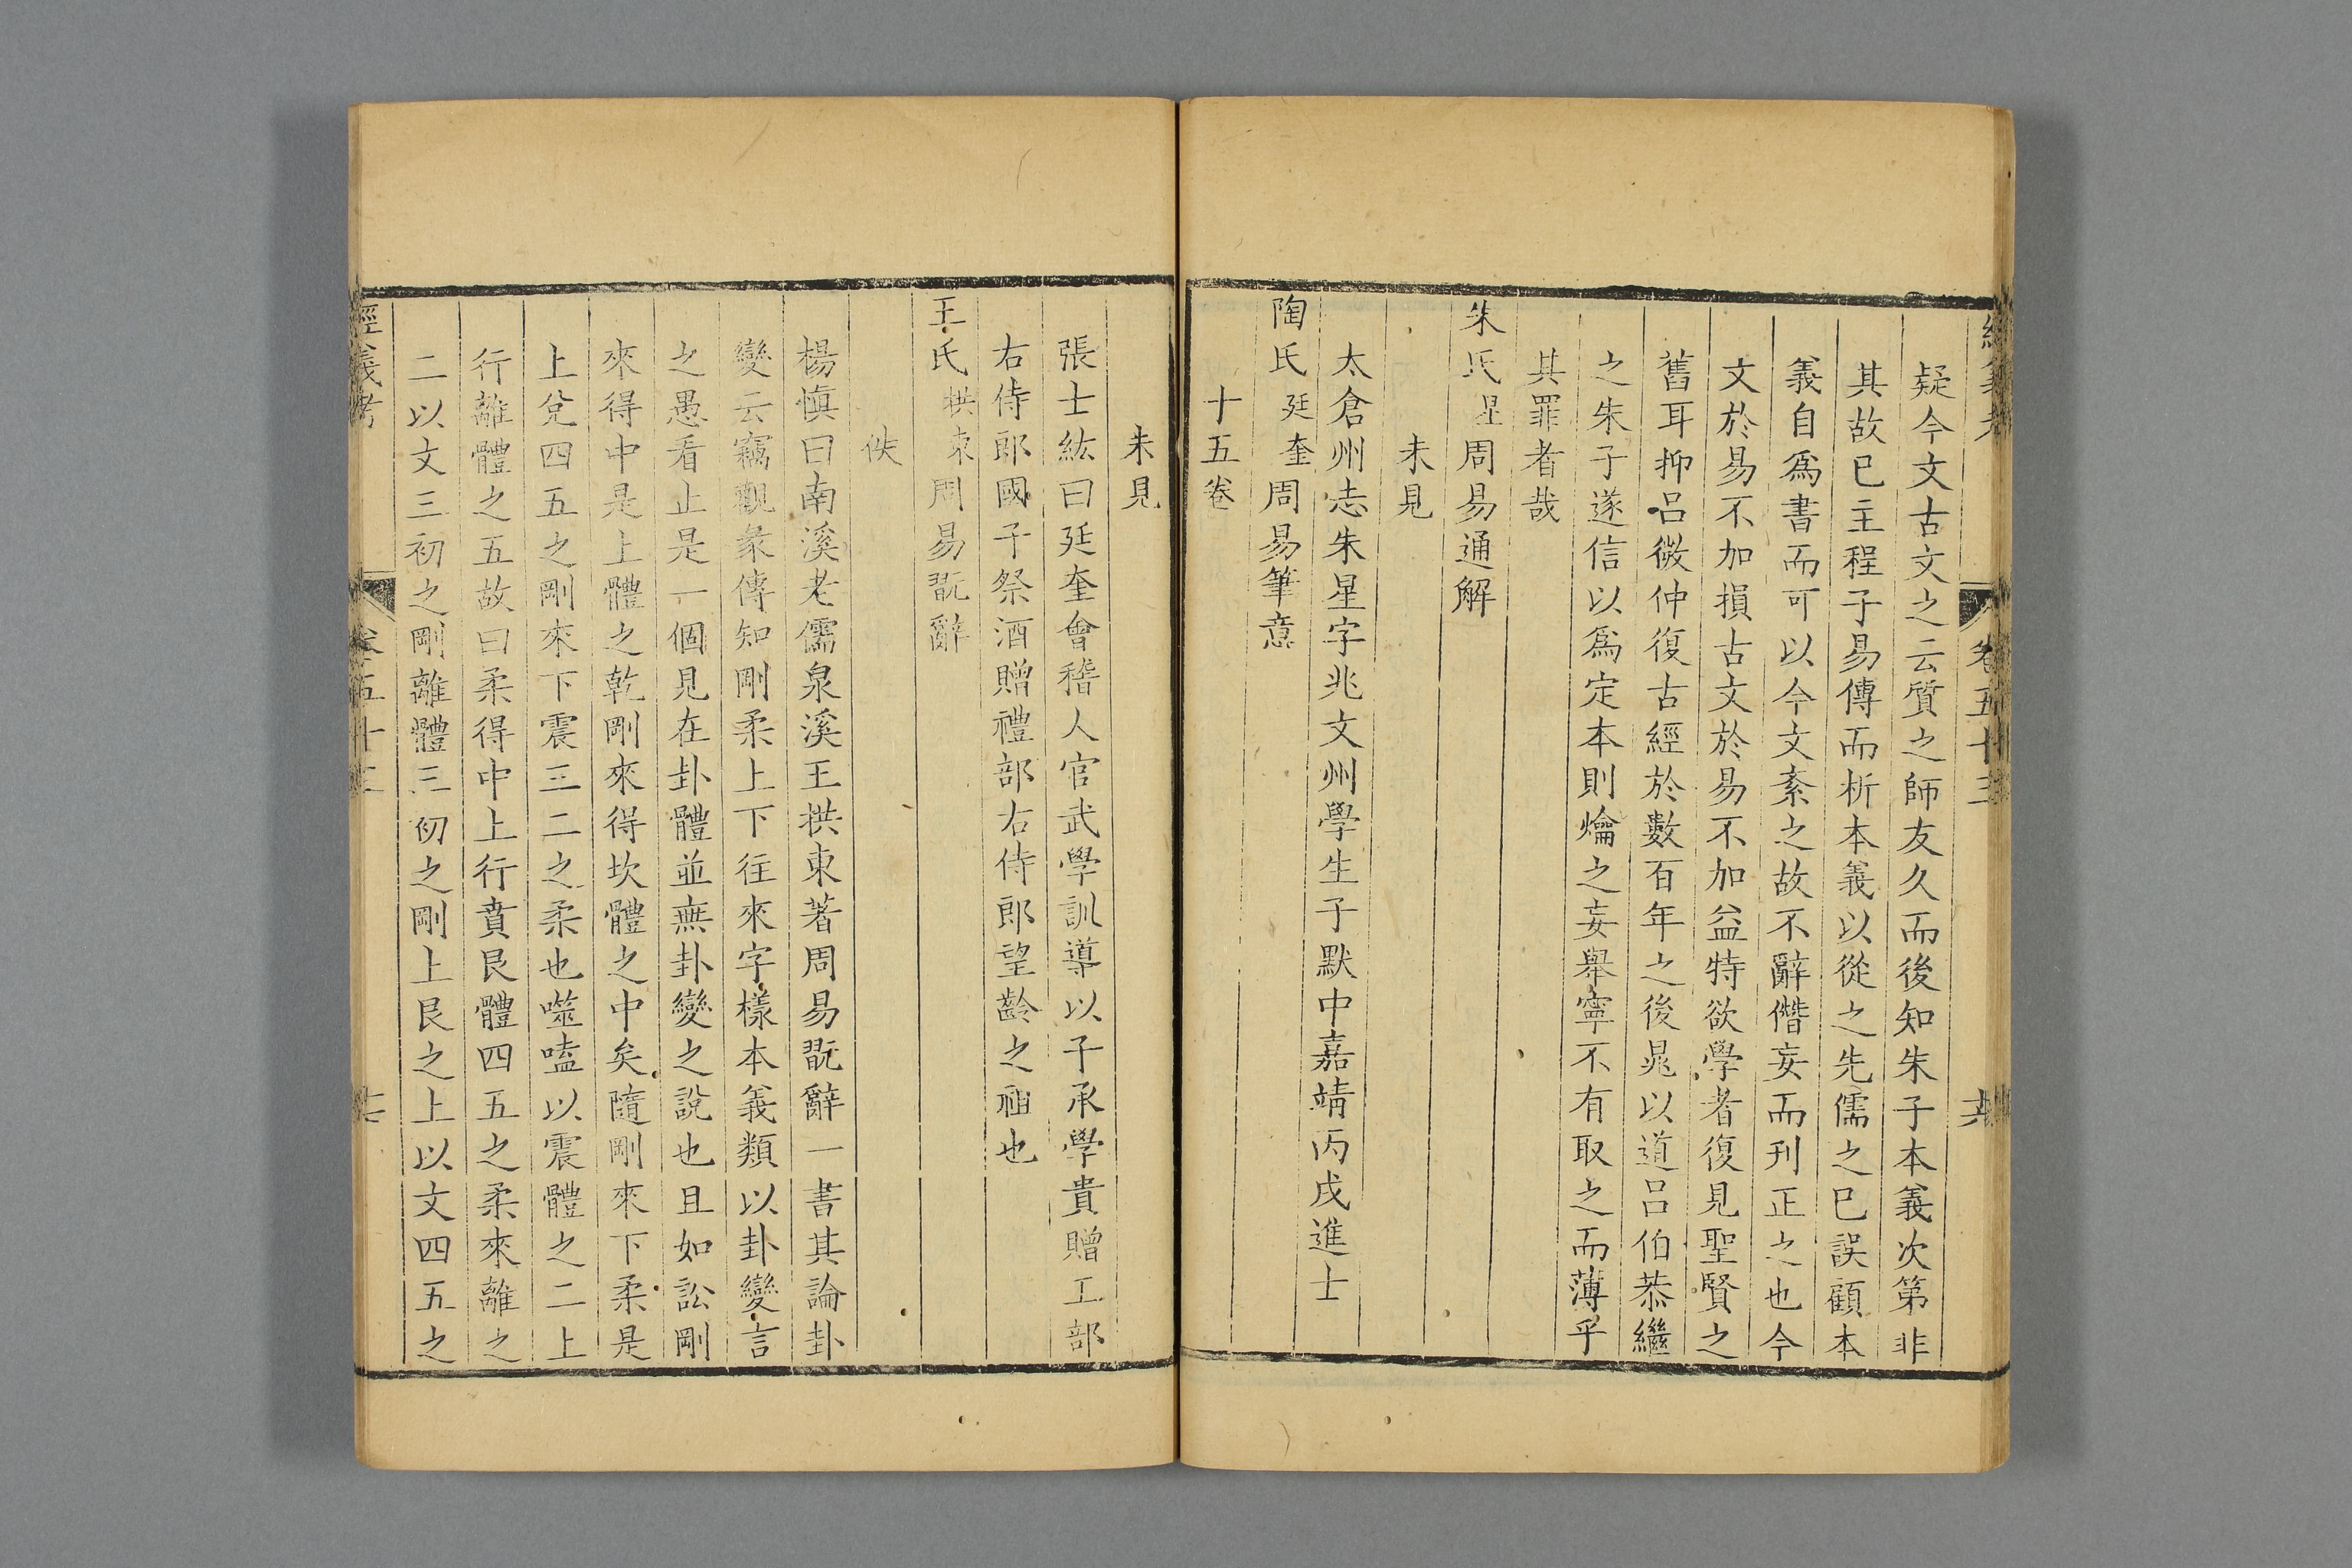 經義考 卷五十三 六
疑今文古文之云質之師友久而後知朱子本義次第非
其故已主程子易傳而析本義以從之先儒之已誤顧本
義自爲書而可以今文紊之故不辭僭妄而刋正之也今
文於易不加損古文於易不加益特欲學者復見聖賢之
舊耳抑呂微仲復古經於數百年之後晁以道呂伯恭繼
之朱子遂信以爲定本則爚之妄舉寧不有取之而薄乎
其罪者哉
朱氏星周易通解
未見
太倉州志朱星字兆文州學生子默中嘉靖丙戌進士
陶氏廷奎周易筆意
十五卷
未見
張士紘曰廷奎會稽人官武學訓導以子承學貴贈工部
右侍郎國子祭酒贈禮部右侍郎望齡之祖也
王氏栱東周易翫辭
佚
楊愼曰南溪老儒泉溪王栱東著周易翫辭一書其論卦
變云竊觀彖傳知剛柔上下往來字樣本義類以卦變言
之愚看止是一個見在卦體並無卦變之說也且如訟剛
來得中是上體之乾剛來得坎體之中矣隨剛來下柔是
上兌四五之剛來下震三二之柔也噬嗑以震體之二上
行離體之五故曰柔得中上行賁艮體四五之柔來離之
二以文三初之剛離體三初之剛上艮之上以文四五之
經義考 卷五十三 七